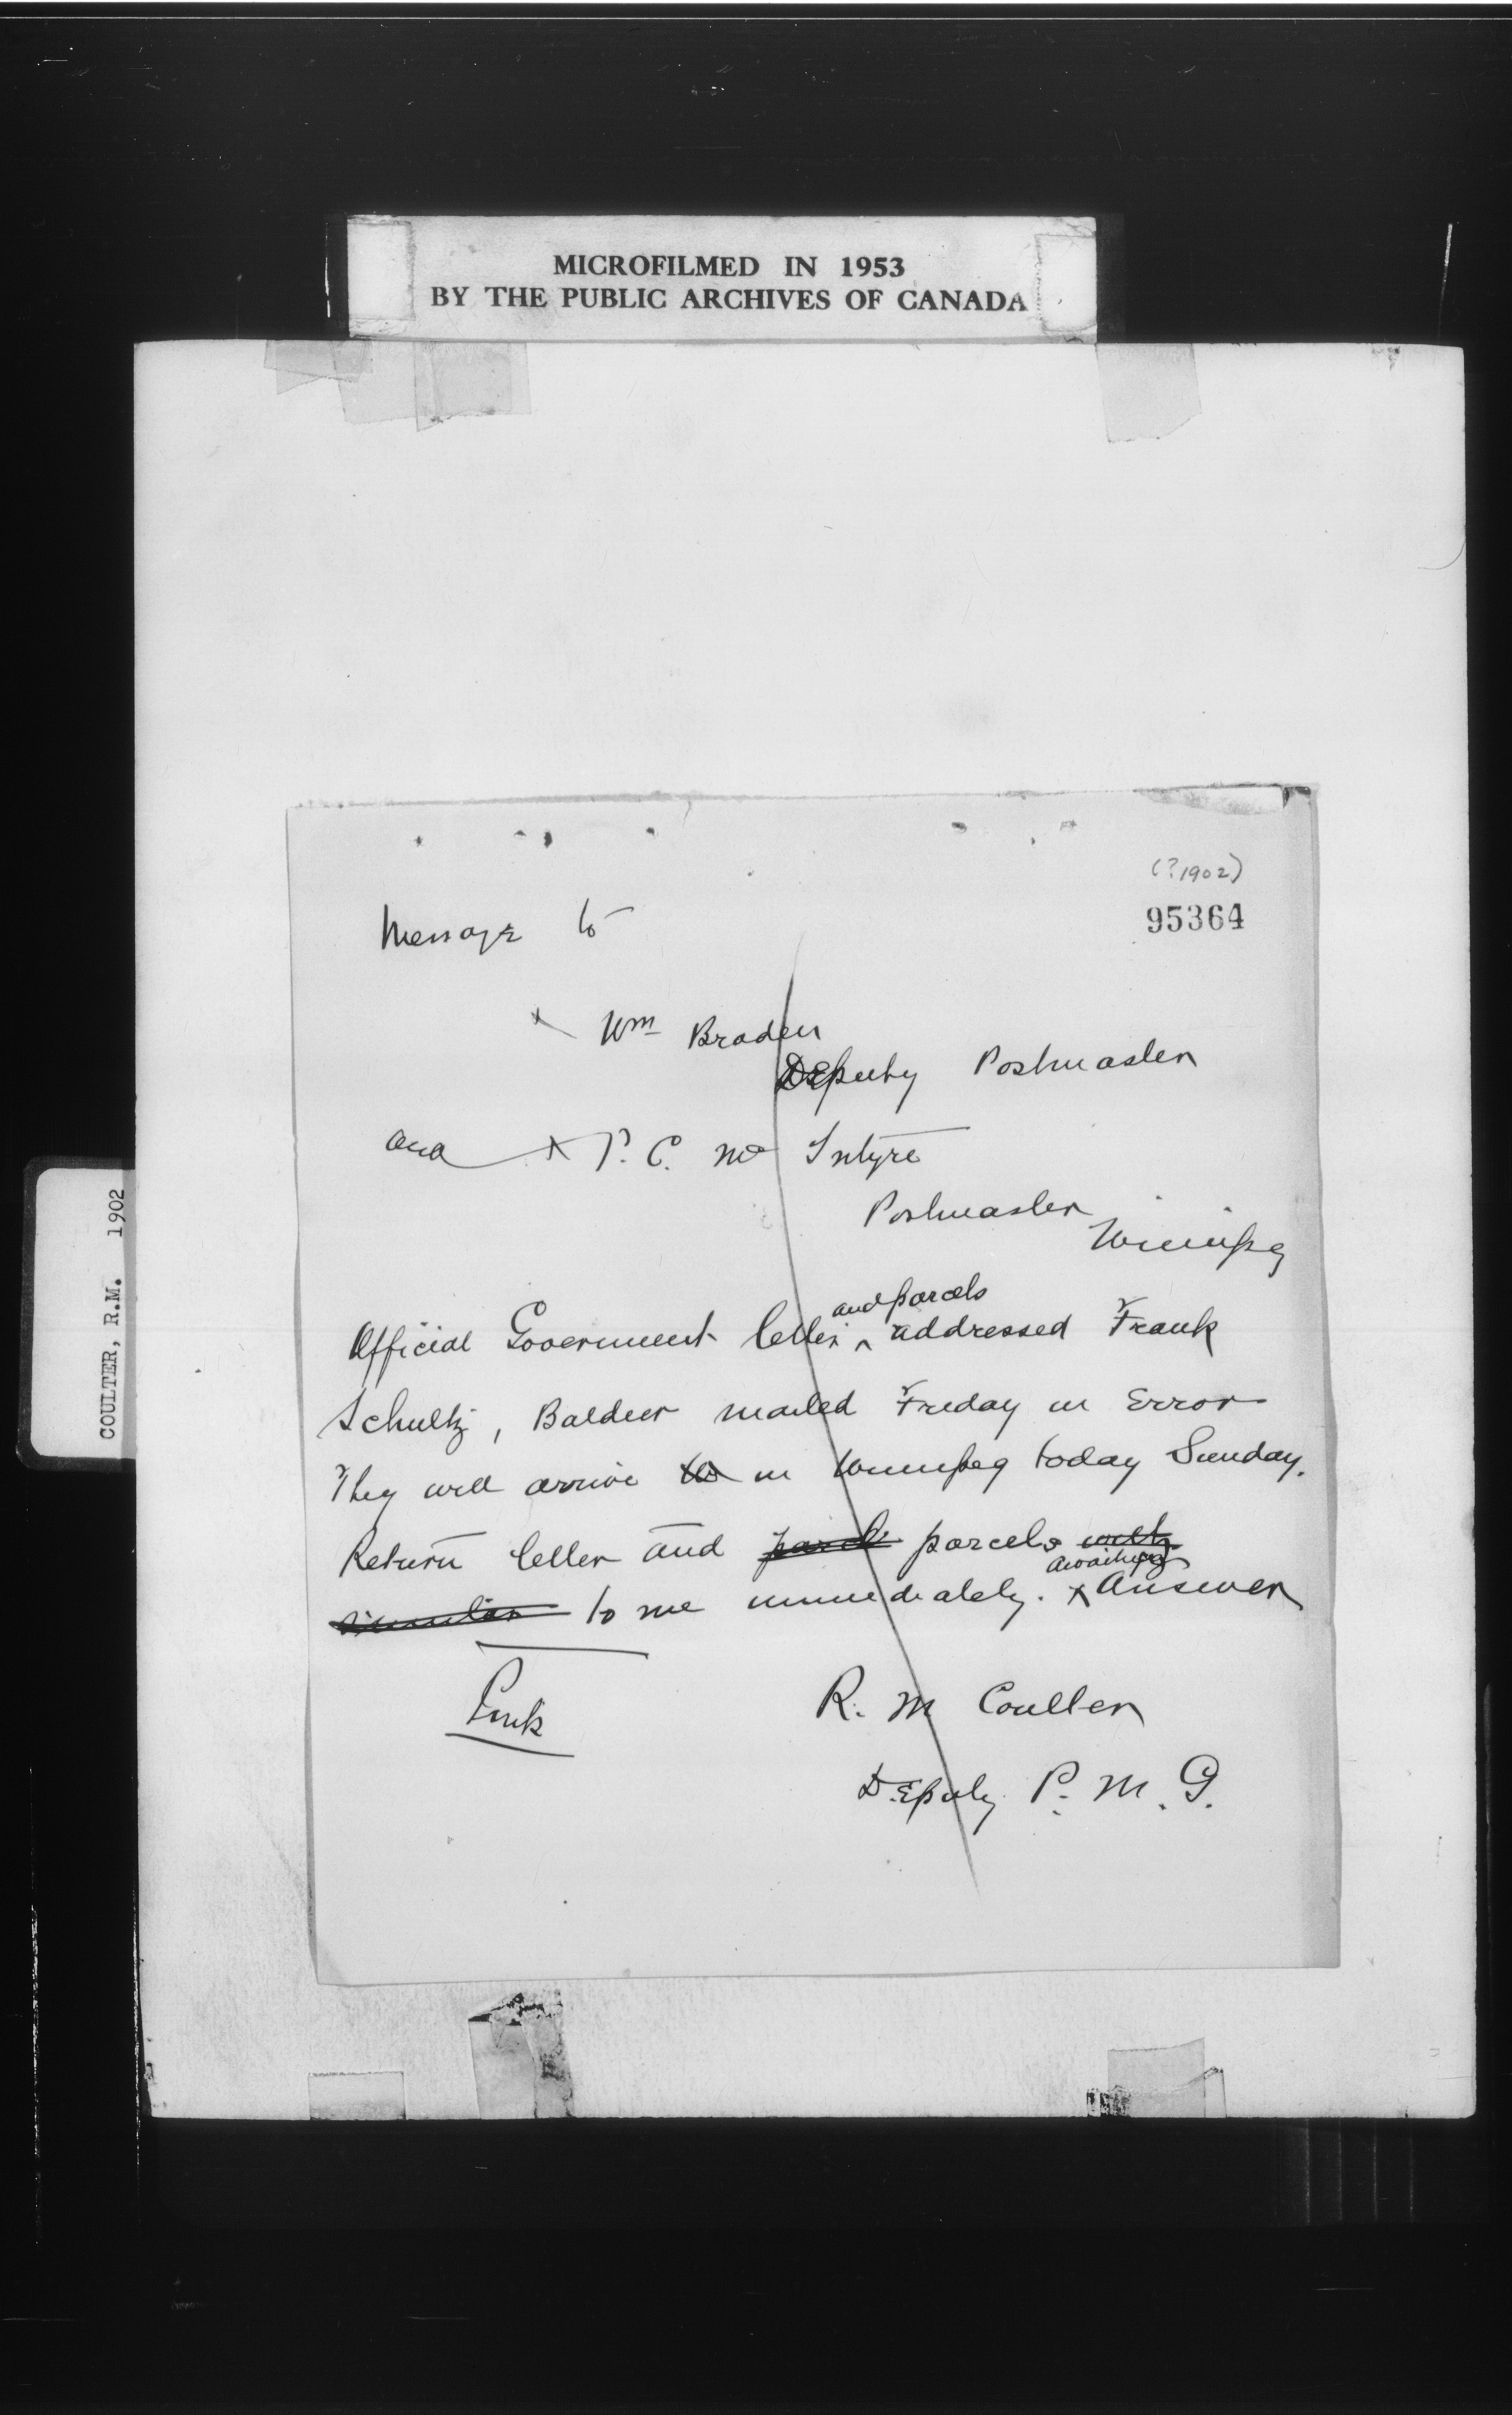 MICROFILMED IN 1953
BY THE PUBLIC ARCHIVES OF CANADA
COULTER, R.M. 1902
(?1902)
95364
Message to
x Wm Braden
Deputy Postmaster
and x P. C. Mc Intyre
Postmaster
Winnipeg
and parcels
Official Government letter ^ addressed Frank
Schultz, Baldur mailed Friday in Error
They will arrive in Winnipeg today Sunday.
Return letter and parcels parcels with
awaiting
similar to me immediately. ^ Answer
R. M Coulter
Deputy P. M. G.